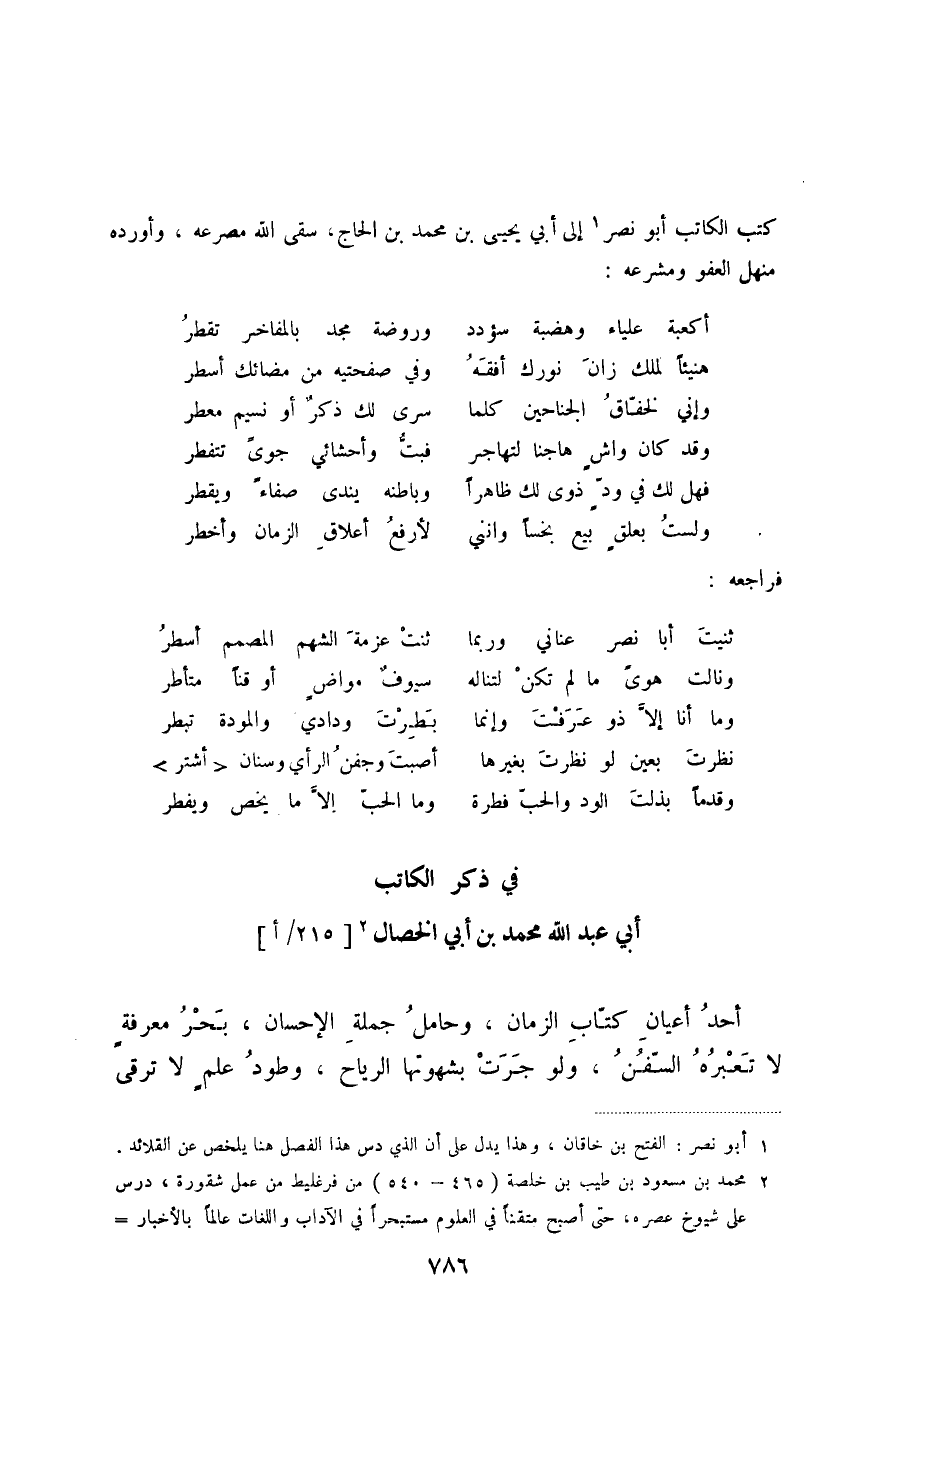 كتب الكاتب أبو نصر ١ إلى أبي يحيى بن محمد بن الحاج، سقى الله مصرعه ، وأورده
منهل العفو ومشرعه :
أكعبة علياء وهضبة سؤدد وروضة مجد بالمفاخر تقطرُ
هنيئاً لملك زانَ نورك أفقَهُ وفي صفحتيه من مضائك أسطر
وإني لخفّاقُ الجناحين كلما سرى لك ذكرٌ أو نسيم معطر
وقد كان واشٍ هاجنا لتهاجر فبتُّ وأحشائي جوىً تتفطر
فهل لك في ودٍّ ذوى لك ظاهراً وباطنه يندى صفاءً ويقطر
ولستُ بعلقٍ بيع بخساً وانني لأرفعُ أعلاقِ الزمان وأخطر
فراجعه :
ثنيتَ أبا نصر عناني وربما ثنتْ عزمةَ الشهم المصمم أسطرُ
ونالت هوىً ما لم تكنْ لتناله سيوفٌ مواضٍ أو قناً متأطر
وما أنا إلاَّ ذو عَرَفْتَ وإنما بَطِرْتَ ودادي والمودة تبطر
نظرتَ بعين لو نظرتَ بغيرها أصبتَ وجفنُ الرأي وسنان < أشتر >
وقدماً بذلتَ الود والحبّ فطرة وما الحبّ إلاَّ ما يخص ويفطر
في ذكر الكاتب
أبي عبد الله محمد بن أبي الخصال ٢ [ ٢١٥/ أ ]
أحدُ أعيانِ كتّابِ الزمان ، وحاملُ جملةِ الإحسان ، بَحْرُ معرفةٍ
لا تَعْبُرُهُ السّفُنُ ، ولو جَرَتْ بشهوتها الرياح ، وطودُ علمٍ لا ترقى
١ أبو نصر : الفتح بن خاقان ، وهذا يدل على أن الذي دس هذا الفصل هنا يلخص عن القلائد .
٢ محمد بن مسعود بن طيب بن خلصة ( ٤٦٥ - ٥٤٠ ) من فرغليط من عمل شقورة ، درس
على شيوخ عصره، حتى أصبح متقناً في العلوم مستبحراً في الآداب واللغات عالماً بالأخبار =
٧٨٦